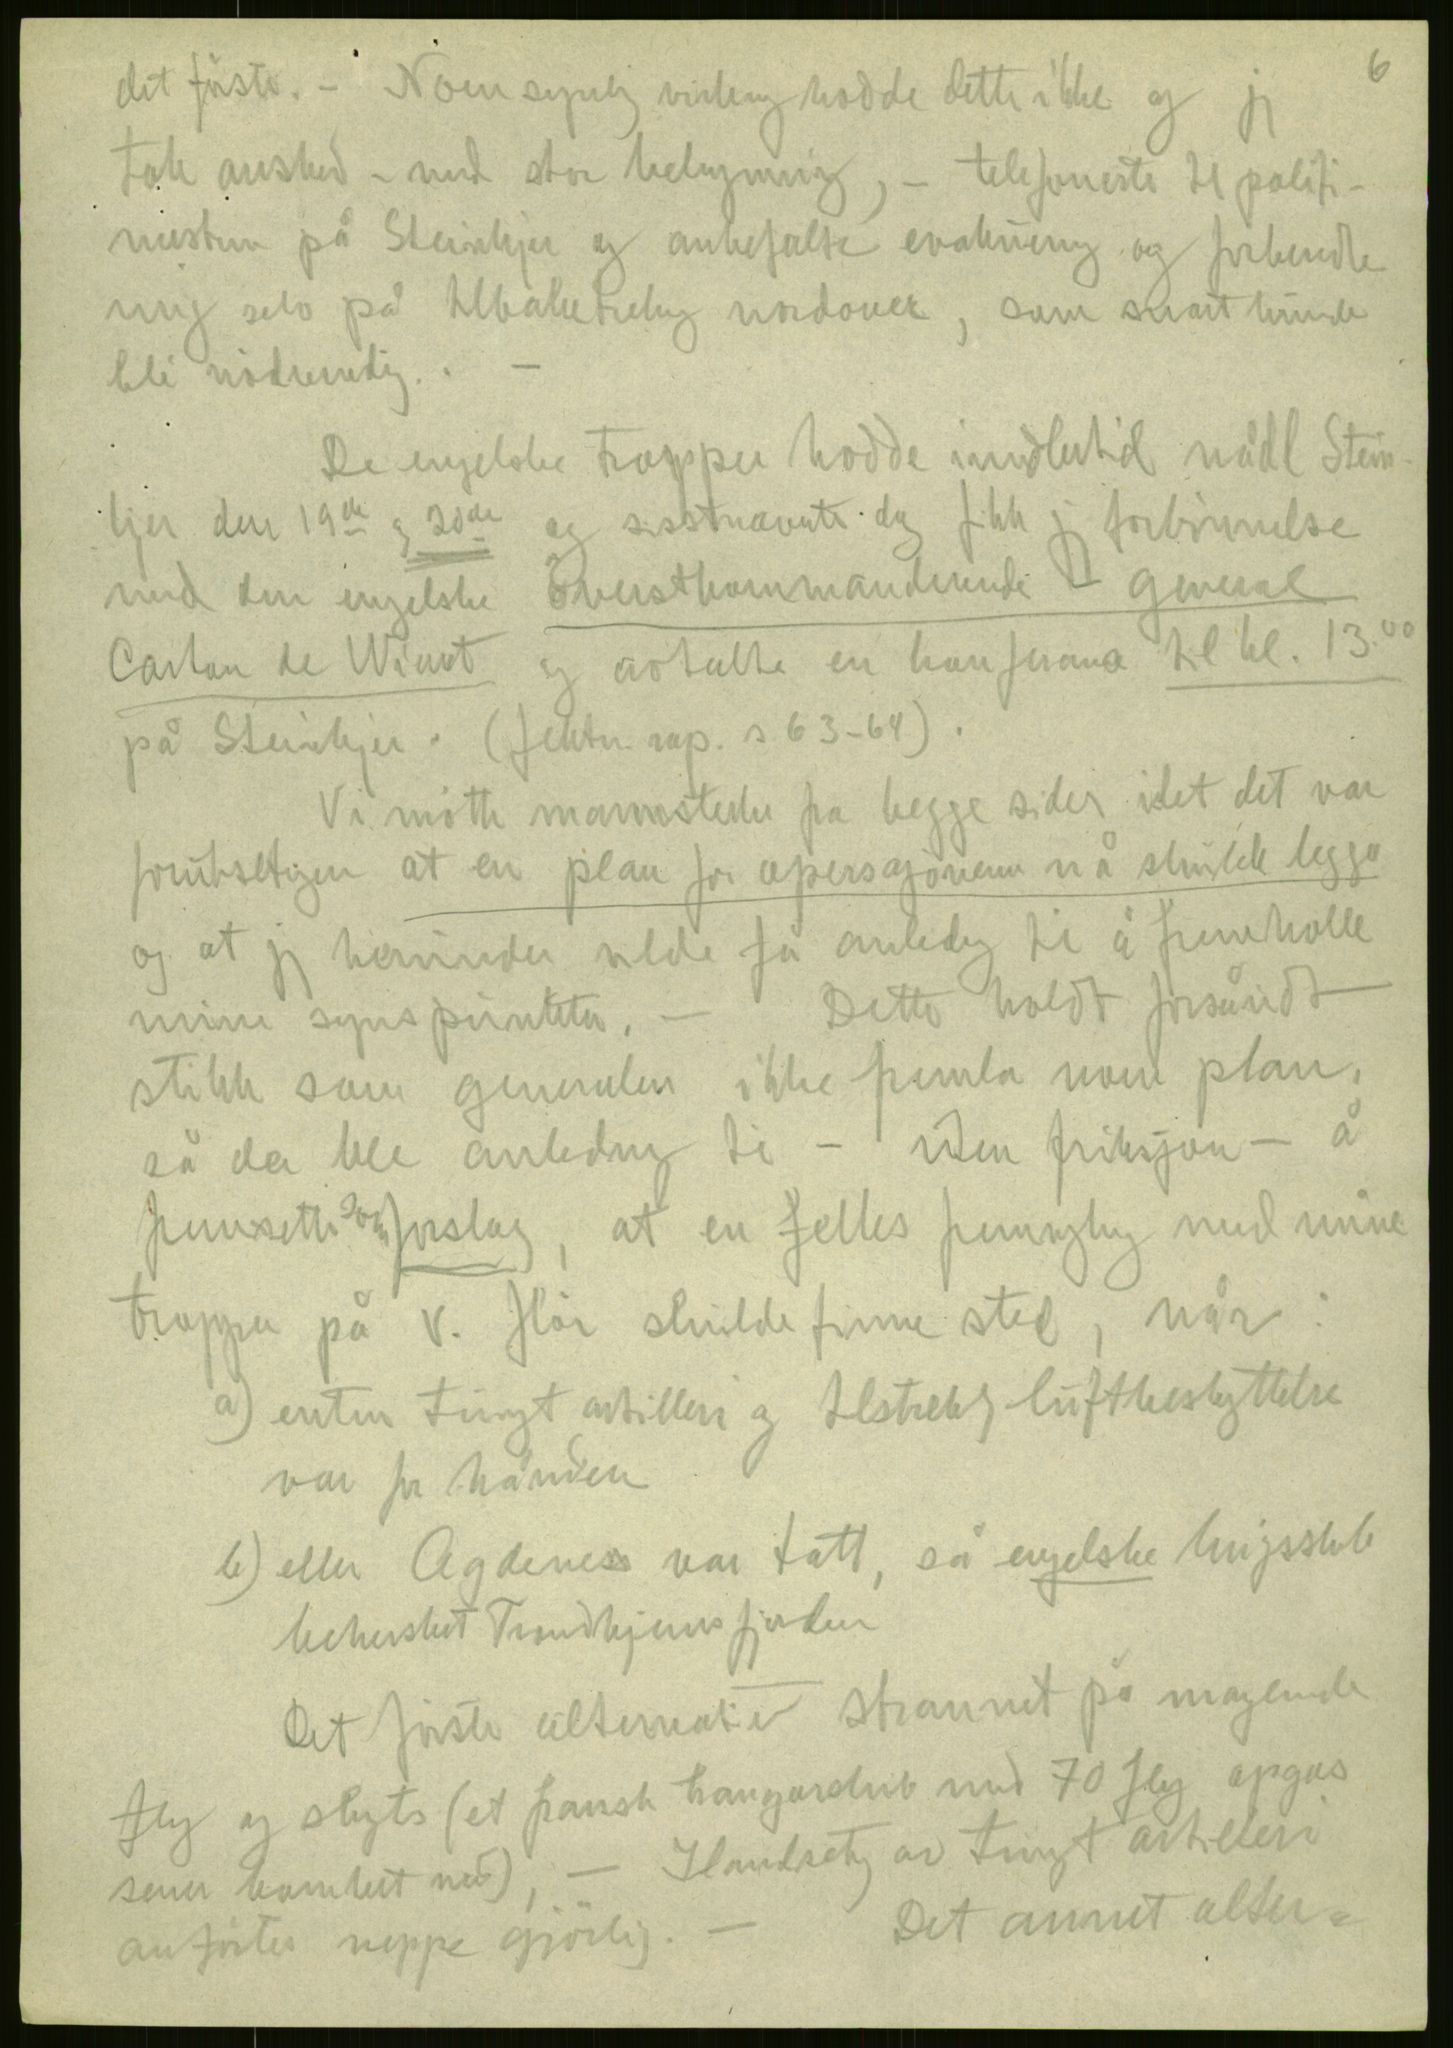 6
det første. - Noen synlig virkning hadde dette ikke og jeg
tok avsked - med stor bekymring, - telefonerte til politi-
mesteren på Steinkjer og anbefalte evakuering og forberedte
mig selv på tilbaketrekning nordover, som snart kunde
bli nødvendig. . -
De engelske tropper hadde imidlertid nådd Stein-
kjer den 19de og 20de og sistnevnte dag fikk jeg forbinnelse
med den engelske øverstkommanderende - general
Carton de Wiart og avtalte en konferanse til kl. 13.00
på Steinkjer. (Jehtn. rap. s 63-64).
Vi møtte mannsterke fra begge sider idet det var
forutsetningen at en plan for operasjonene nå skulde legges
og at jeg herunder vilde få anledning til å fremholde
mine synspunkter. - Dette holdt forsåvidt
stikk som generalen ikke fremla noen plan,
så der ble anledning til - uten friksjon - å
fremsette som forslag, at en felles fremrykning med mine
tropper på v. fløi skulde finne sted, når:
a) enten tungt artilleri og tilstrekkelig luftbeskyttelse
var for hånden
b) eller Agdenes var tatt, så engelske krigsskib
behersket Trondhjemsfjorden
Det første alternativ strannet på manglende
fly og skyts (et fransk hangarskib med 70 fly opgas
senere bombet ned), - Ilandsetning av tungt artilleri
anførtes neppe gjørlig. - Det annet alter-